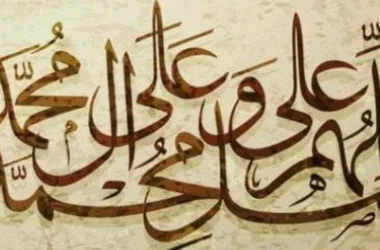 اللّهم صل على محمد وعلى ال محمّد